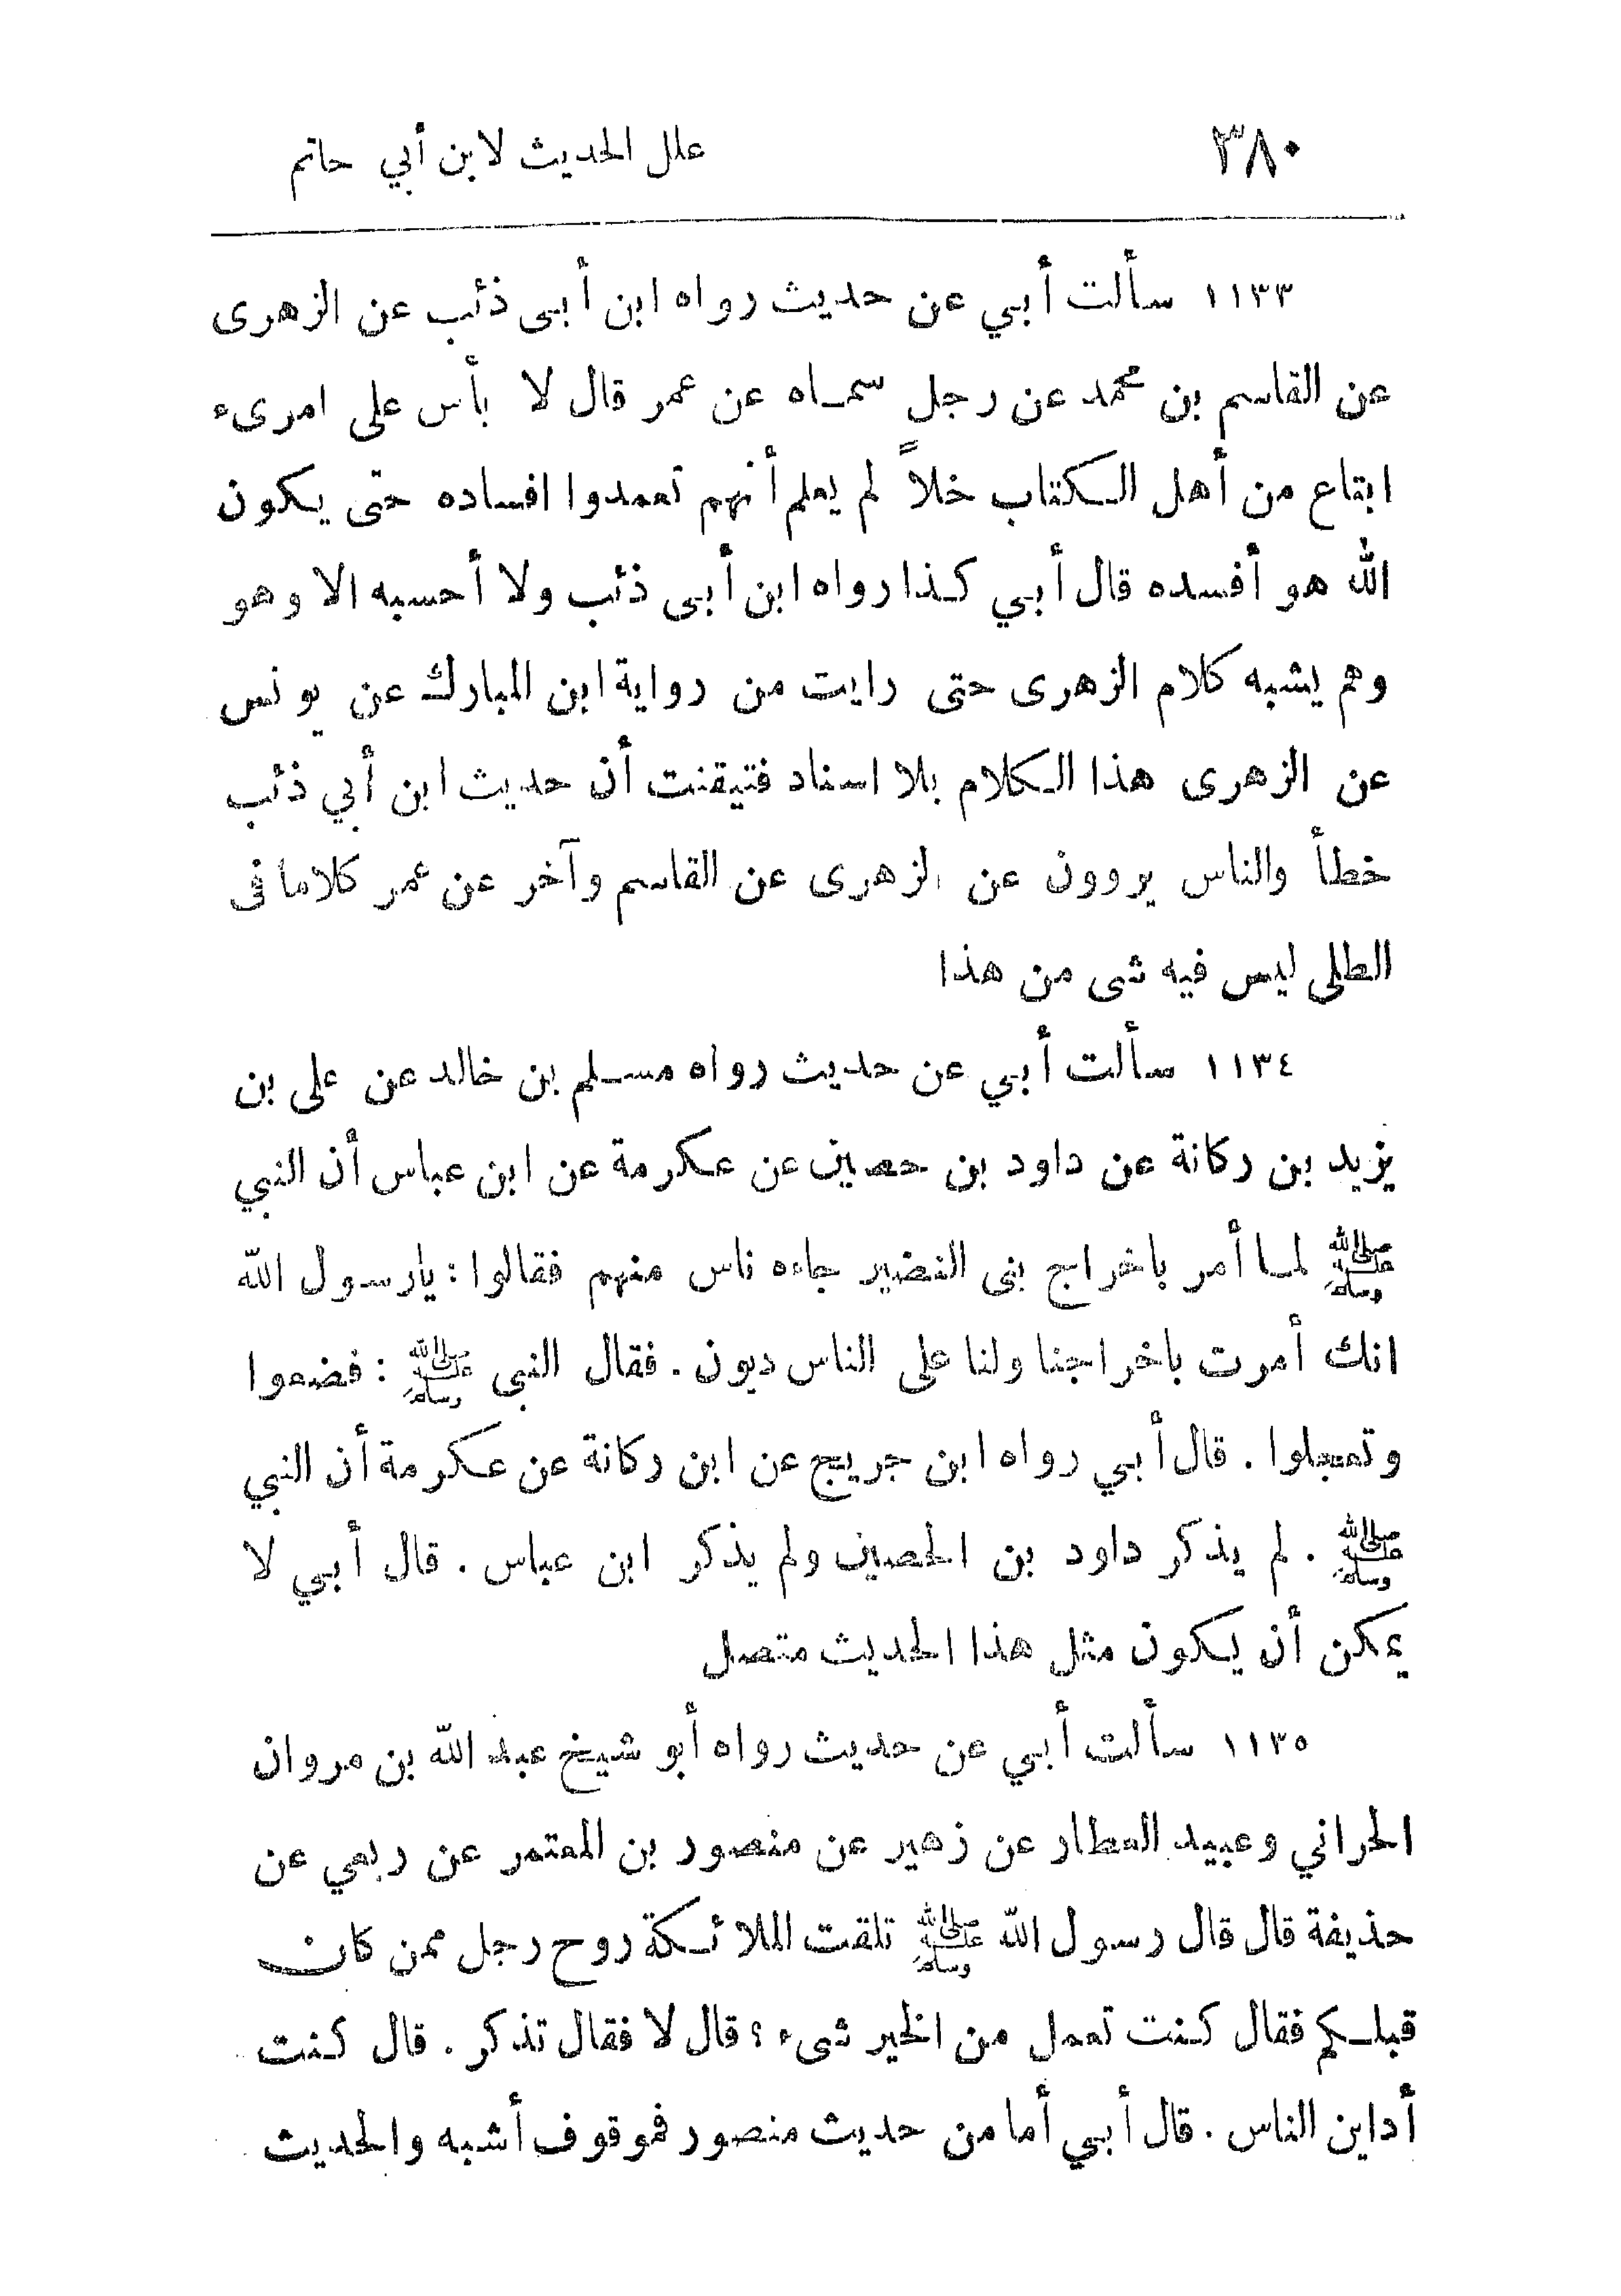 ٣٨٠ علل الحديث لابن أبي حاتم
١١٣٣ سألت أبي عن حديث رواه ابن أبى ذئب عن الزهرى
عن القاسم بن محمد عن رجل سمـاه عن عمر قال لا بأس على امرىء
ابتاع من أهل الـكتاب خلاً لم يعلم أنهم تعمدوا افساده حتى يـكون
الله هو أفسده قال أبي كـذا رواه ابن أبى ذئب ولا أحسبه الا وهو
وهم يشبه كلام الزهرى حتى رايت من رواية ابن المبارك عن يونس
عن الزهرى هذا الـكلام بلا اسناد فتيقنت أن حديث ابن أبي ذئب
خطأ والناس يروون عن الزهرى عن القاسم وآخر عن عمر كلاما فى
الطلى ليس فيه شى من هذا
١١٣٤ سألت أبي عن حديث رواه مسـلم بن خالد عن على بن
يزيد بن ركانة عن داود بن حصين عن عـكرمة عن ابن عباس أن النبي
ﷺ لمـا أمر باخراج بنى النضير جاءه ناس منهم فقالوا : يارسول الله
انك أمرت باخراجنا ولنا على الناس ديون . فقال النبى ﷺ : فضعوا
وتعجلوا . قال أبي رواه ابن جريج عن ابن ركانة عن عـكرمة أن النبي
ﷺ . لم يذكر داود بن الحصين ولم يذكر ابن عباس . قال أبي لا
يمكن أن يـكون مثل هذا الحديث متصل
١١٣٥ سألت أبي عن حديث رواه أبو شيخ عبد الله بن مروان
الحراني وعبيد العطار عن زهير عن منصور بن المعتمر عن ربعي عن
حذيفة قال قال رسول الله ﷺ تلقت الملائـكة روح رجل ممن كان
قبلـكم فقال كـنت تعمل من الخير شىء ؟ قال لا فقال تذكر . قال كـنت
أداين الناس . قال أبي أما من حديث منصور فموقوف أشبه والحديث